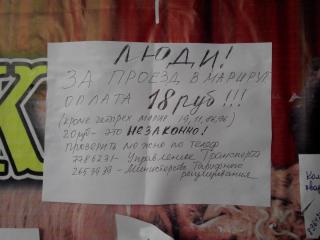 ЛЮДИ!
ЗА ПРОЕЗД В МАРШРУТ
ОПЛАТА 18 руб !!!
(кроме четырех марш.
20 руб - это НЕЗАКОННО!
Проверить можно по телеф
Управление Транспорта
Министерство Тарифного
регулирования